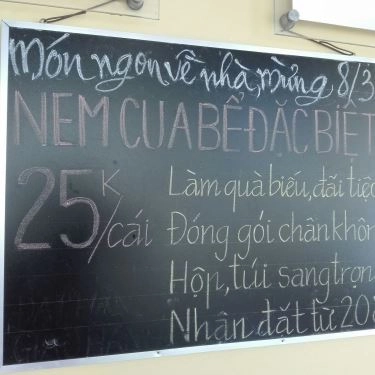 Món ngon về nhà, mừng 8/3
NEM CUA BỂ ĐẶC BIỆT
25K/cái
Làm quà biếu, đãi tiệ
Đóng gói chân khôn
Hộp, túi sang trọn
Nhận đặt từ 20